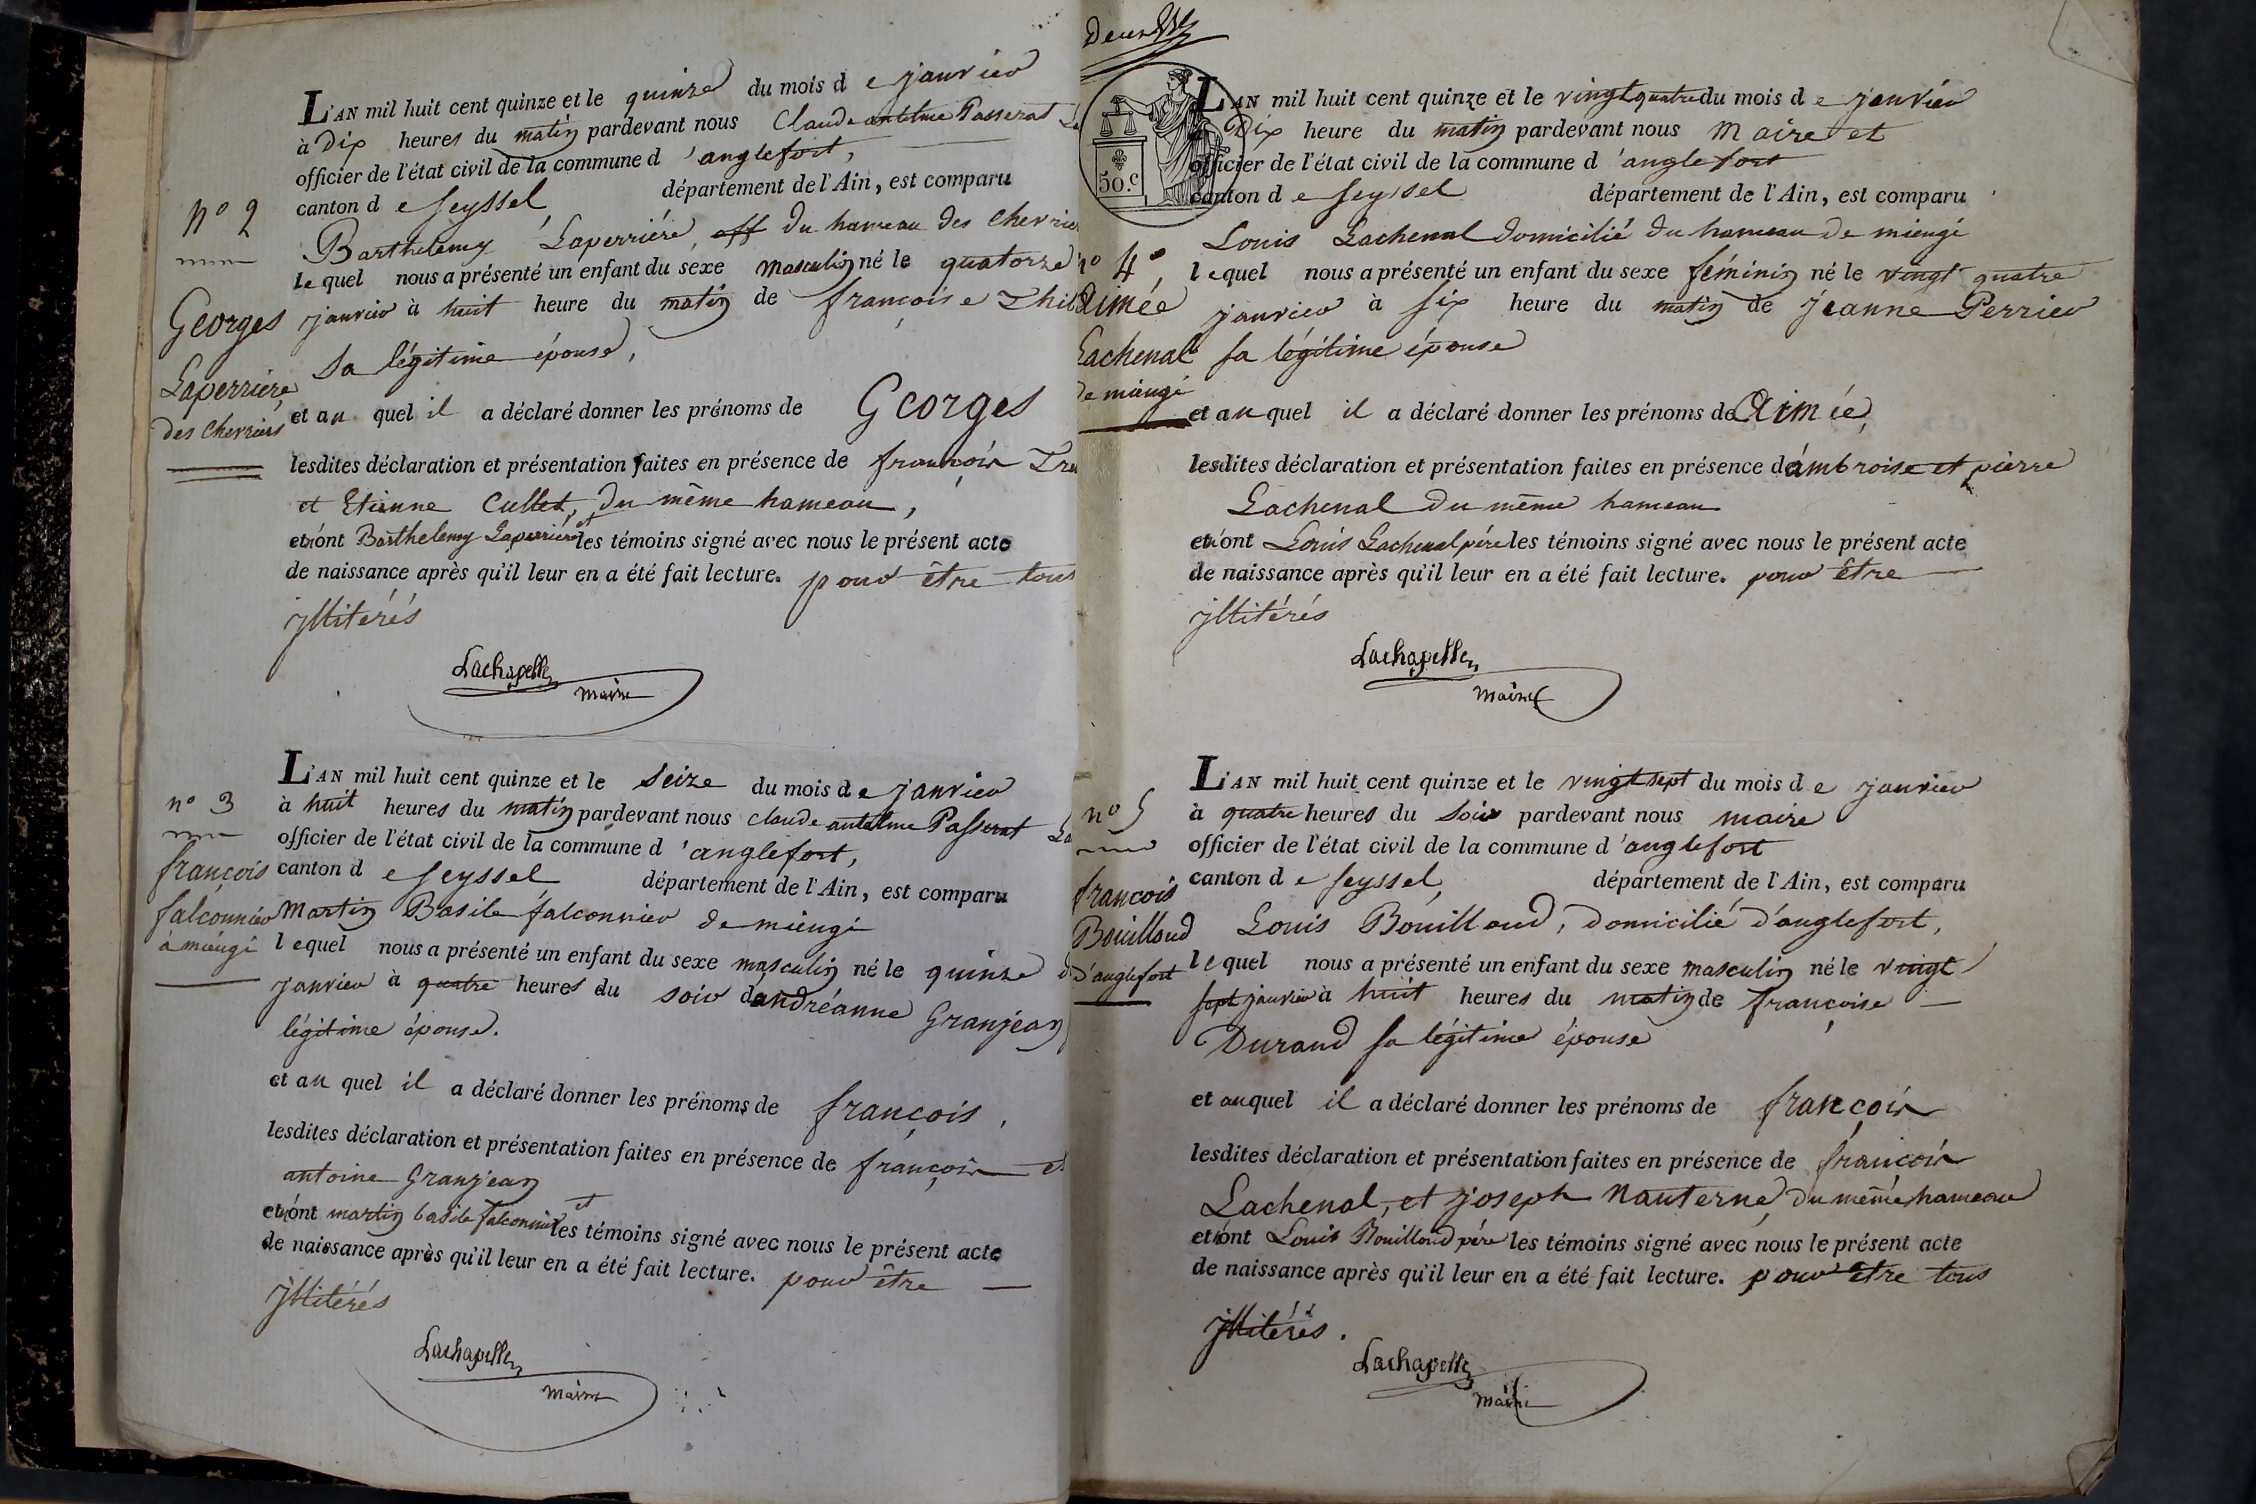 L'AN mil huit cent quinze et le quinze du mois d e janvier
à Dix heures du matin pardevant nous Claude antelme Passerat
officier de l'état civil de la commune d 'anglefort,
canton d e Seyssel département de l'Ain, est comparu
n° 2
Barthelemy Laperriére, du hameau des chevrie
le quel nous a présenté un enfant du sexe masculin né le quatorze
Georges
janvier à huit heure du matin de françoise Thi
Sa légitime épouse,
Laperriere
des Chevriers
et au quel il a déclaré donner les prénoms de Georges
lesdites déclaration et présentation faites en présence de françois
et Etienne Cullet, du même hameau,
et n'ont Barthelemy Laperriére et les témoins signé avec nous le présent acte
de naissance après qu'il leur en a été fait lecture. pour être tous
jllitérés
Lachapelle
maire
L'AN mil huit cent quinze et le seize du mois d e janvier
n° 3
à huit heures du matin pardevant nous claude antelme Passerat La
officier de l'état civil de la commune d 'anglefort,
canton d e Seyssel département de l'Ain, est comparu
françois
falconnier
à miéugi
Martin Basile falconnier de miéugi
l equel nous a présenté un enfant du sexe masculin né le quinze
janvier à quatre heures du soir d'andréanne Granjean
légitime épouse.
et au quel il a déclaré donner les prénoms de françois,
lesdites déclaration et présentation faites en présence de françois et
antoine Granjean
et n'ont martin basile falconnier et les témoins signé avec nous le présent acte
de naissance après qu'il leur en a été fait lecture. pour être
jllitérés
Lachapelle
maire
50.c
L'AN mil huit cent quinze et le vingt quatre du mois d e janvier
Dix heure du matin pardevant nous Maire et
officier de l'état civil de la commune d 'anglefort
canton d e Seyssel département de l'Ain, est comparu
n° 4
Louis Lachenal domicilié du hameau de miéugi
l equel nous a présenté un enfant du sexe féminin né le vingt quatre
Aimée
janvier à six heure du matin de jeanne Perrier
Lachenal
de miéugi
sa légitime épouse
et au quel il a déclaré donner les prénoms de Aimée,
lesdites déclaration et présentation faites en présence d'ambroise et pierre
Lachenal du même hameau
et n'ont Louis Lachenal pére les témoins signé avec nous le présent acte
de naissance après qu'il leur en a été fait lecture. pour être
jllitérés
Lachapelle
maire
L'AN mil huit cent quinze et le vingt sept du mois d e janvier
n° 5
à quatre heures du soir pardevant nous maire
officier de l'état civil de la commune d 'anglefort
canton d e Seyssel, département de l'Ain, est comparu
françois
Bouilloud
d'anglefort
Louis Bouilloud, domicilié d'anglefort,
le quel nous a présenté un enfant du sexe masculin né le vingt
sept janvier à huit heures du matin de françoise
Durand sa légitime épouse
et auquel il a déclaré donner les prénoms de françois
lesdites déclaration et présentation faites en présence de françois
Lachenal, et joseph Nanterne, du même hameau
et n'ont Louis Bouilloud pére les témoins signé avec nous le présent acte
de naissance après qu'il leur en a été fait lecture. pour être tous
jllitérés.
Lachapelle
maire